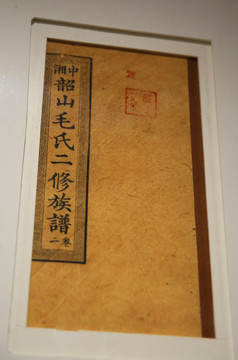 中湘
韶山毛氏二修族譜
卷二